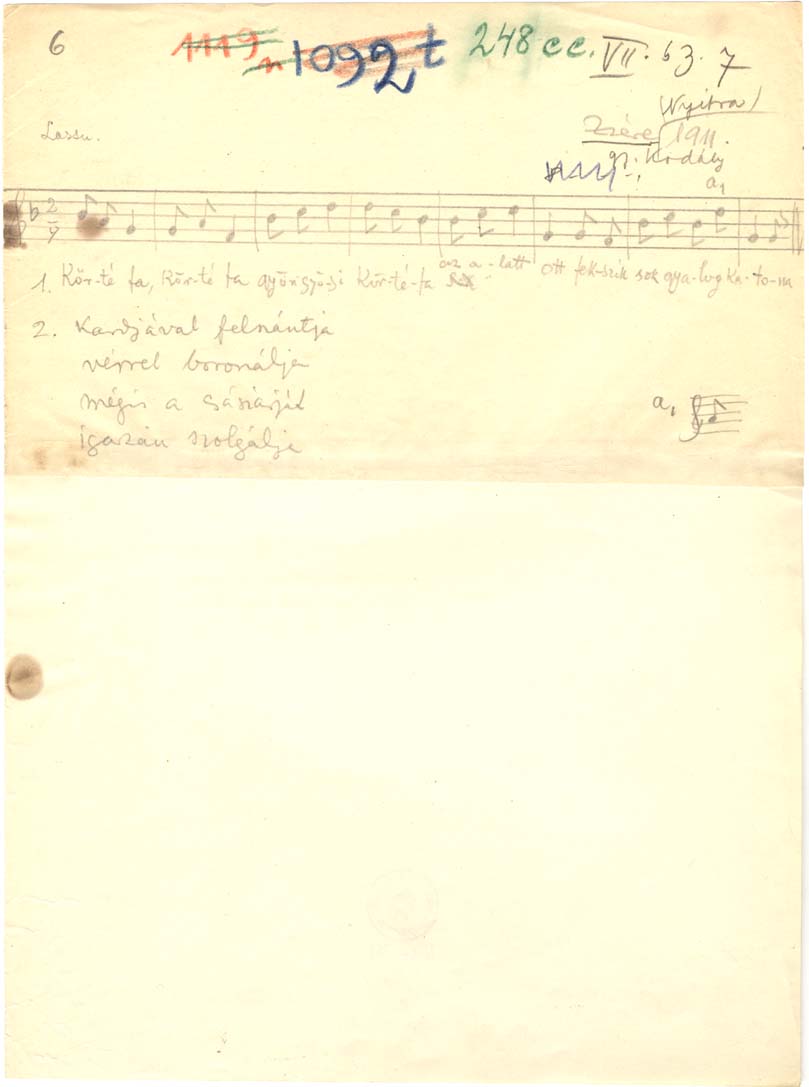 6 1119 n 1092 t 248 cc. VII. b 3. 7
(Nyitra)
Lassu. Zsére 1911.
gy. Kodály
a₁
2/4
az a-latt
1. Kör-té fa, Kör-té fa gyöngyö-si Kör-té-fa Ott fek-szik sok gya-log ka-to-na
2. Kardjával felszántja
vérrel boronálja
mégis a császárját
igazán szolgálja
a₁